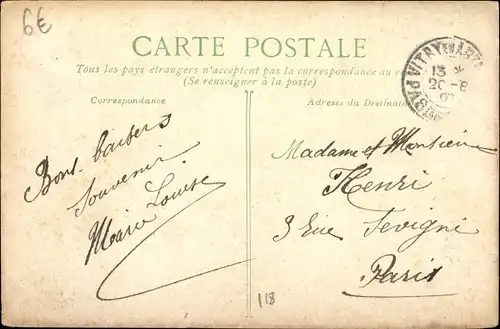 6€
CARTE POSTALE
Tous les pays étrangers n'acceptent pas la correspondance au
(Se renseigner à la poste)
Correspondance
Adresse du Destinat
13 *
20-8
Bons baisers
Souvenir
Marie Louise
Madame et Monsieur
Henri
3 Rue Sevigné
Paris
118